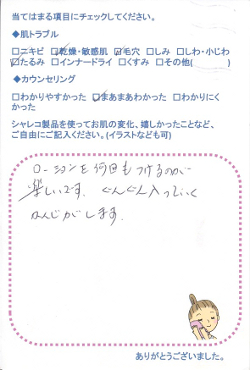 当てはまる項目にチェックしてください。
◆肌トラブル
□ニキビ ☑乾燥・敏感肌 ☑毛穴 □しみ □しわ・小じわ
☑たるみ □インナードライ □くすみ □その他( )
◆カウンセリング
□わかりやすかった ☑まあまあわかった □わかりにく
かった
シャレコ製品を使ってお肌の変化、嬉しかったことなど、
ご自由にご記入ください。(イラストなども可)
ローションを何回もつけるのが
楽しいです。ぐんぐん入っていく
かんじがします。
ありがとうございました。